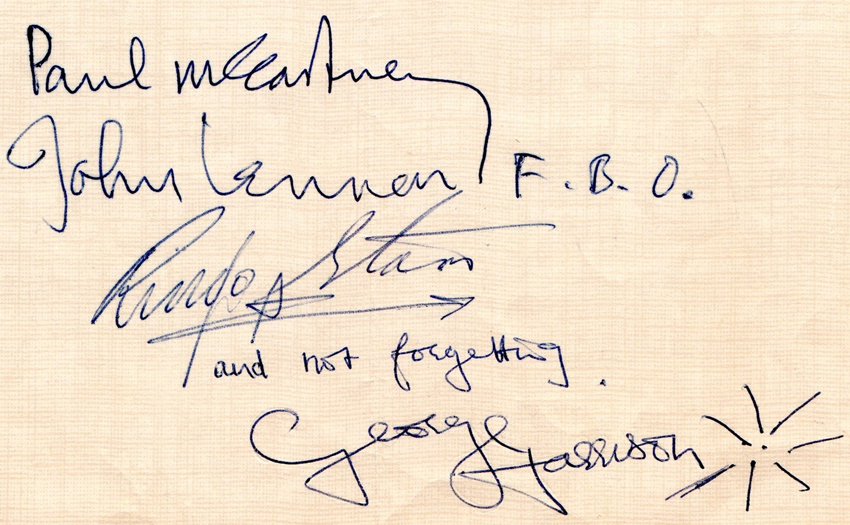 Paul McCartney
John Lennon F.B.O.
Ringo Starr
and not forgetting.
George Harrison